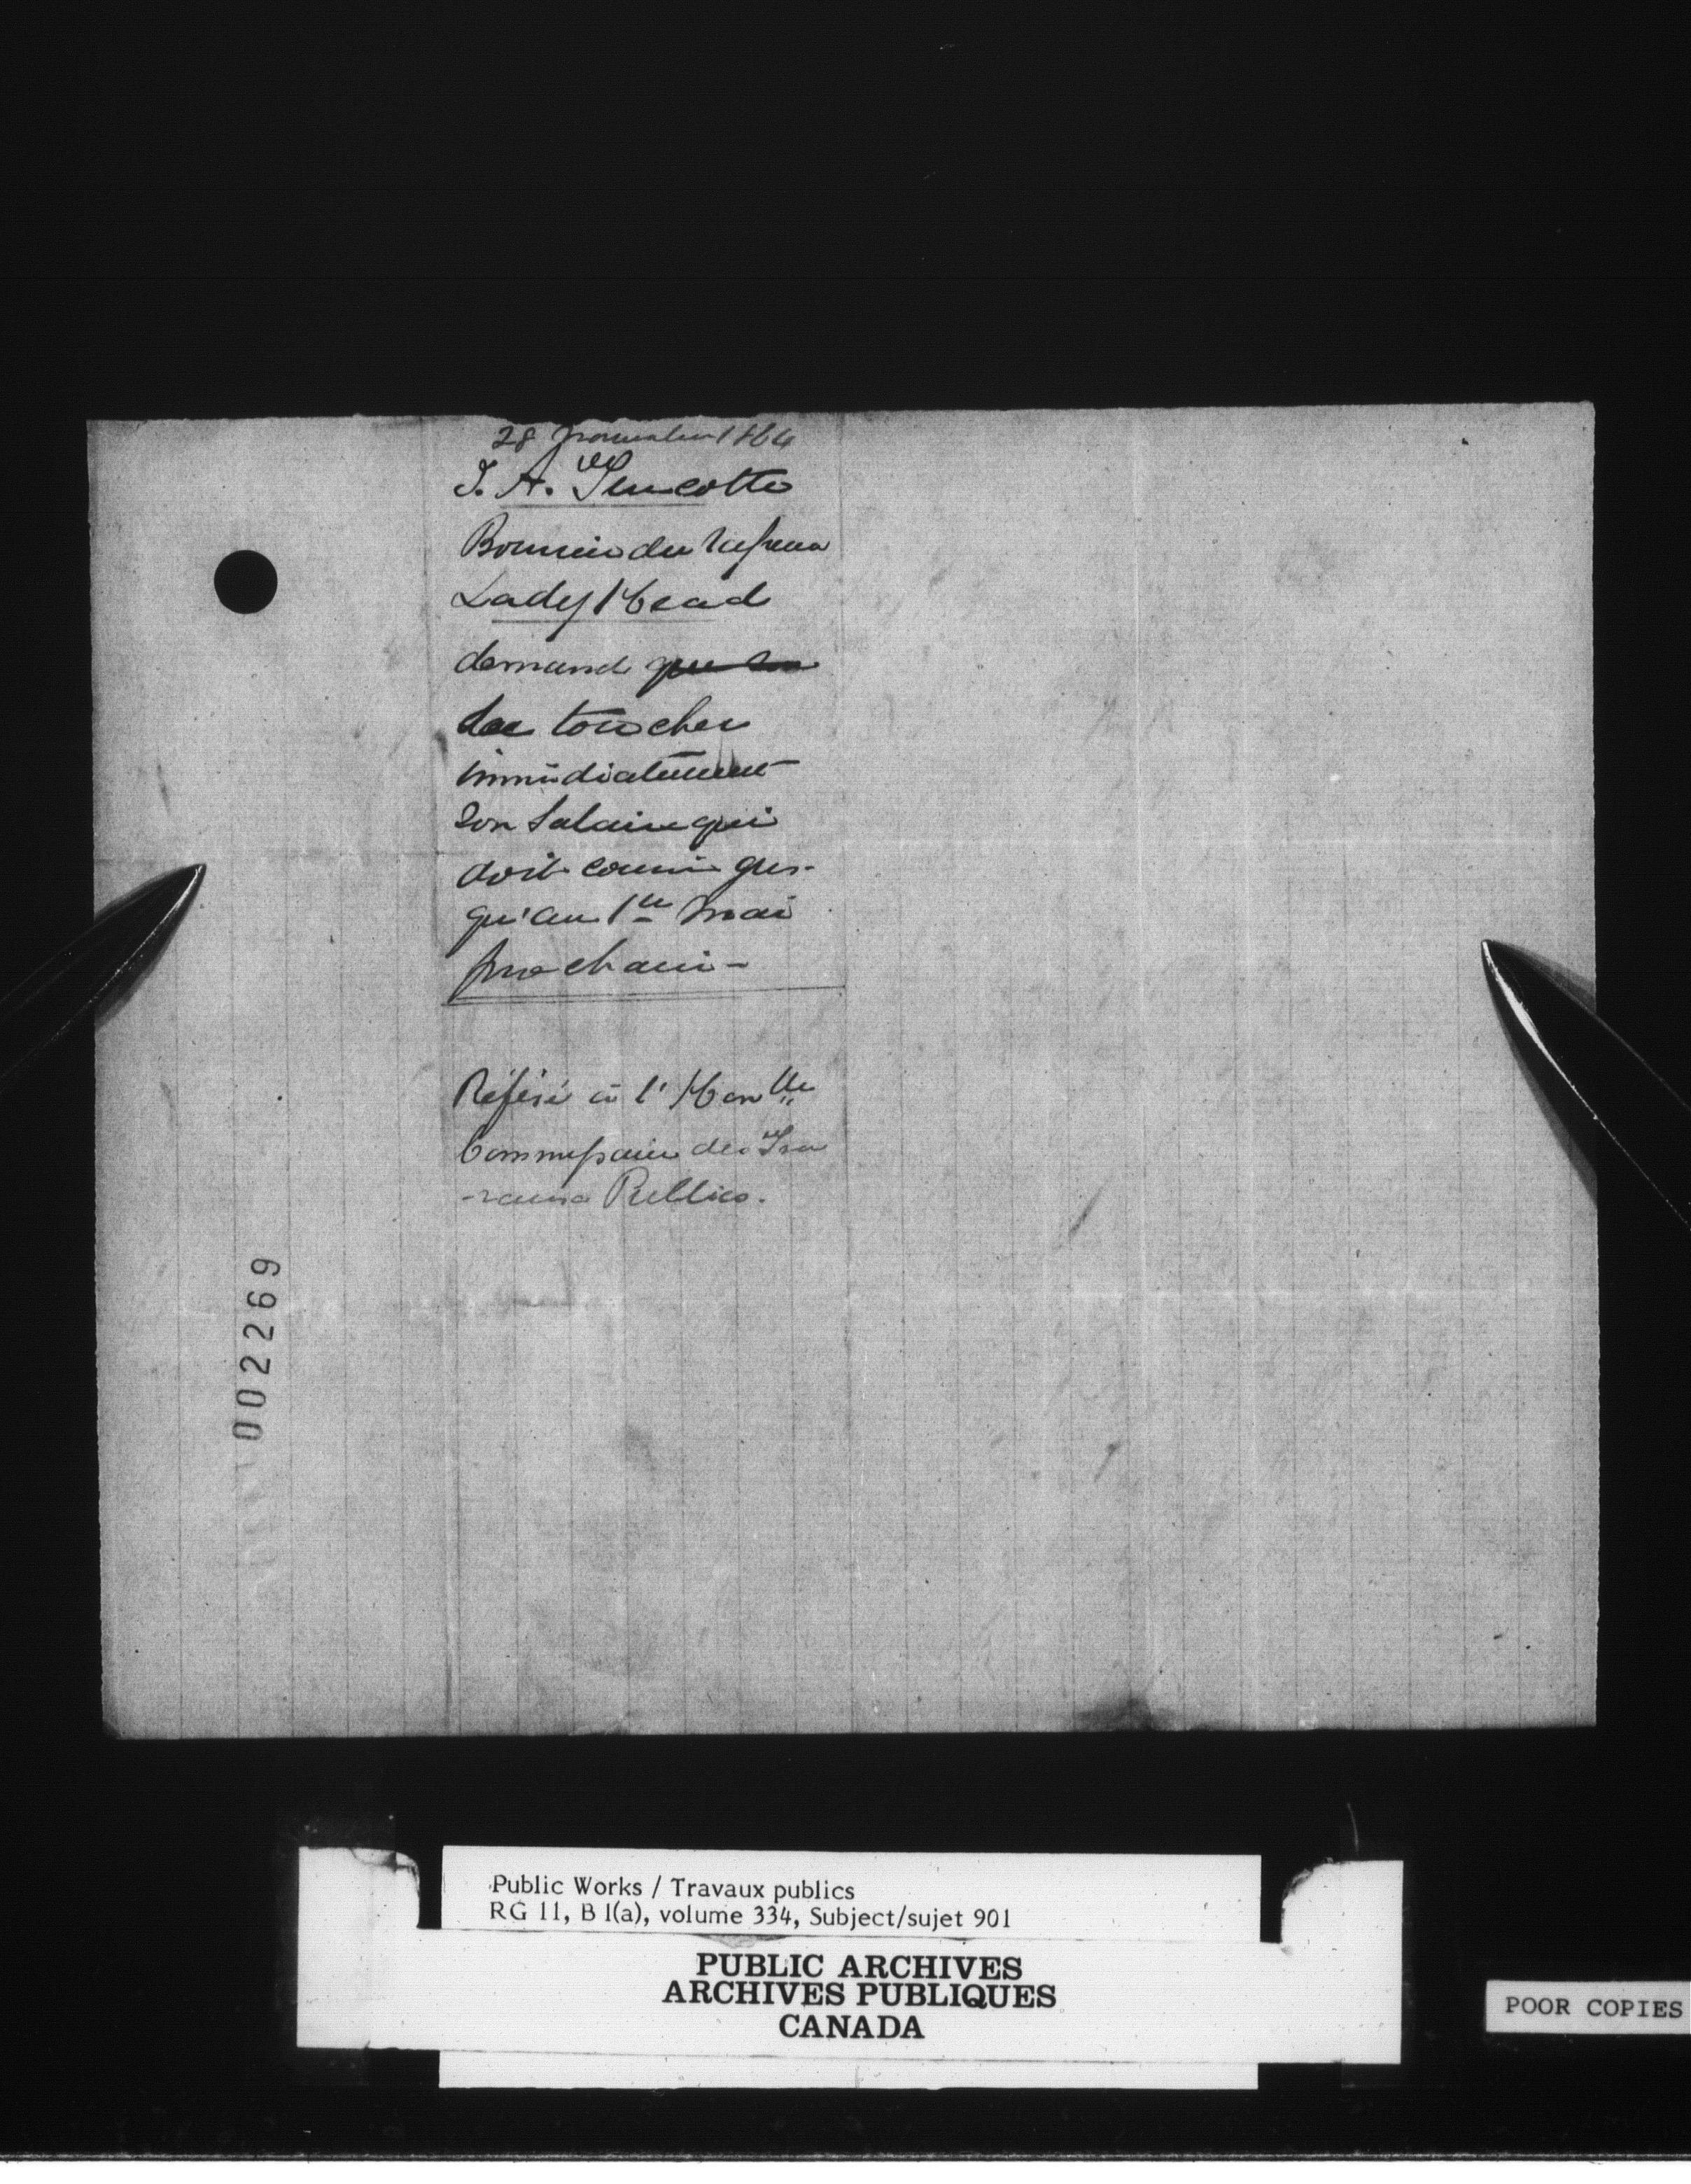 28 Novembre 1864
J. A. Turcotte
Commis du Vapeur
Lady Head
demande que son
de toucher
immédiatement
son Salaire qui
doit courir jus-
qu'au 1er Mai
prochain -
Référé à l'Honble
Commissaire des Tra
-vaux Publics.
002269
Public Works / Travaux publics
RG 11, B 1(a), volume 334, Subject/sujet 901
PUBLIC ARCHIVES
ARCHIVES PUBLIQUES
CANADA
POOR COPIES